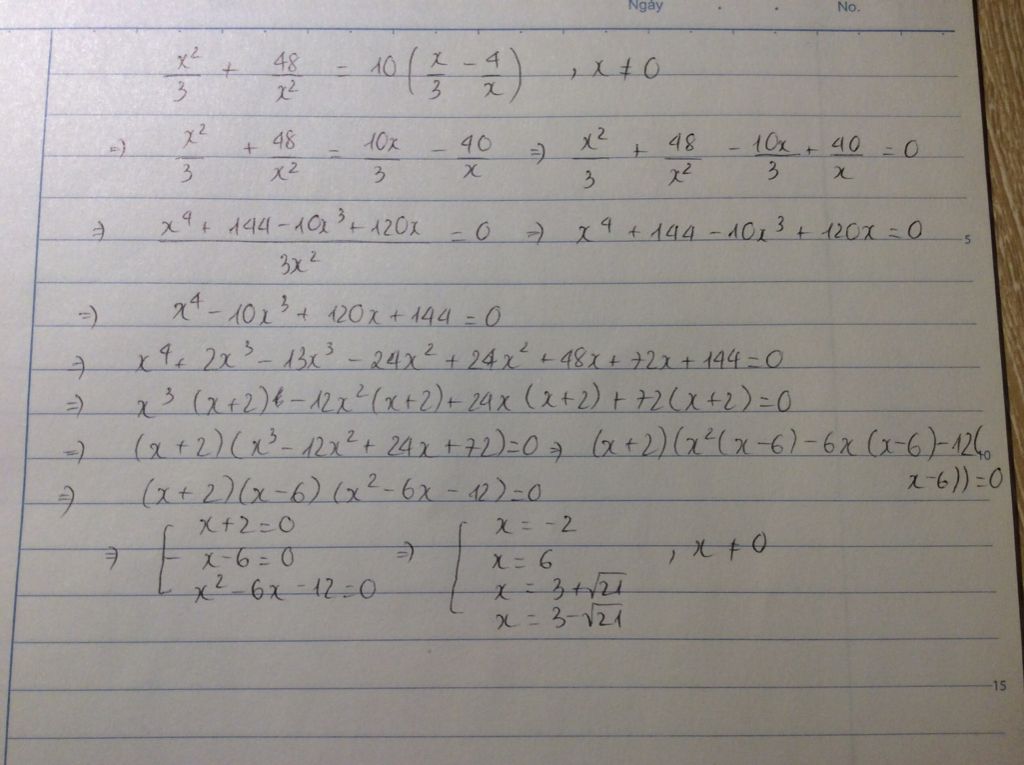 Ngày . . No.
x²/3 + 48/x² = 10(x/3 - 4/x) , x ≠ 0
=) x²/3 + 48/x² = 10x/3 - 40/x =) x²/3 + 48/x² - 10x/3 + 40/x = 0
=) (x⁴ + 144 - 10x³ + 120x)/3x² = 0 =) x⁴ + 144 - 10x³ + 120x = 0
5
=) x⁴ - 10x³ + 120x + 144 = 0
=) x⁴ + 2x³ - 13x³ - 24x² + 24x² + 48x + 72x + 144 = 0
=) x³ (x+2) - 12x²(x+2) + 24x (x+2) + 72(x+2) = 0
=) (x+2)(x³ - 12x² + 24x + 72) = 0 =) (x+2)(x²(x-6) - 6x (x-6) - 12(
10
x-6)) = 0
=) (x+2)(x-6)(x² - 6x - 12) = 0
=) [ x+2 = 0 =) [ x = -2
x-6 = 0 x = 6 , x ≠ 0
x² - 6x - 12 = 0 x = 3+√21
x = 3-√21
15